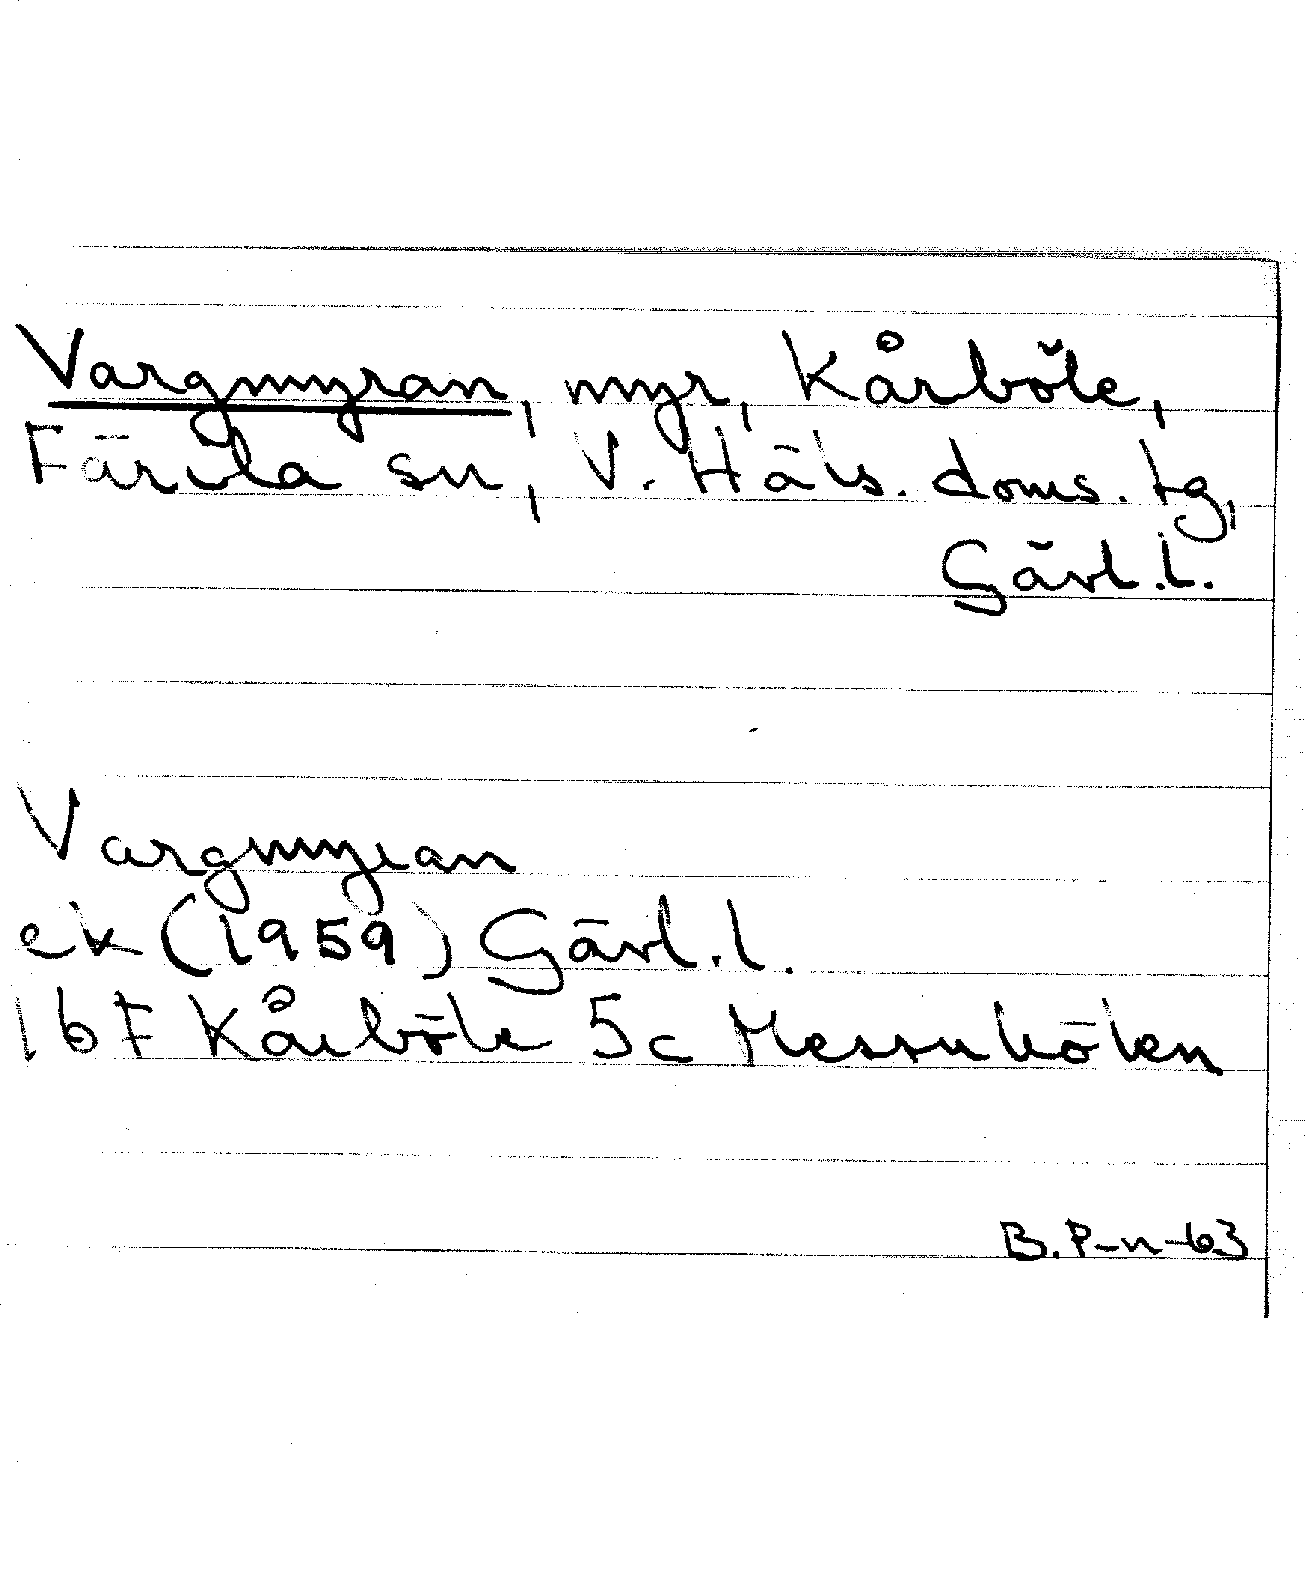 Vargmyran, myr, Kårböle,
Färila sn, V. Häls. doms. tg,
Gävl.l.
Vargmyran
ek (1959) Gävl.l.
16F Kårböle 5c Messuhölen
B.P-n-63